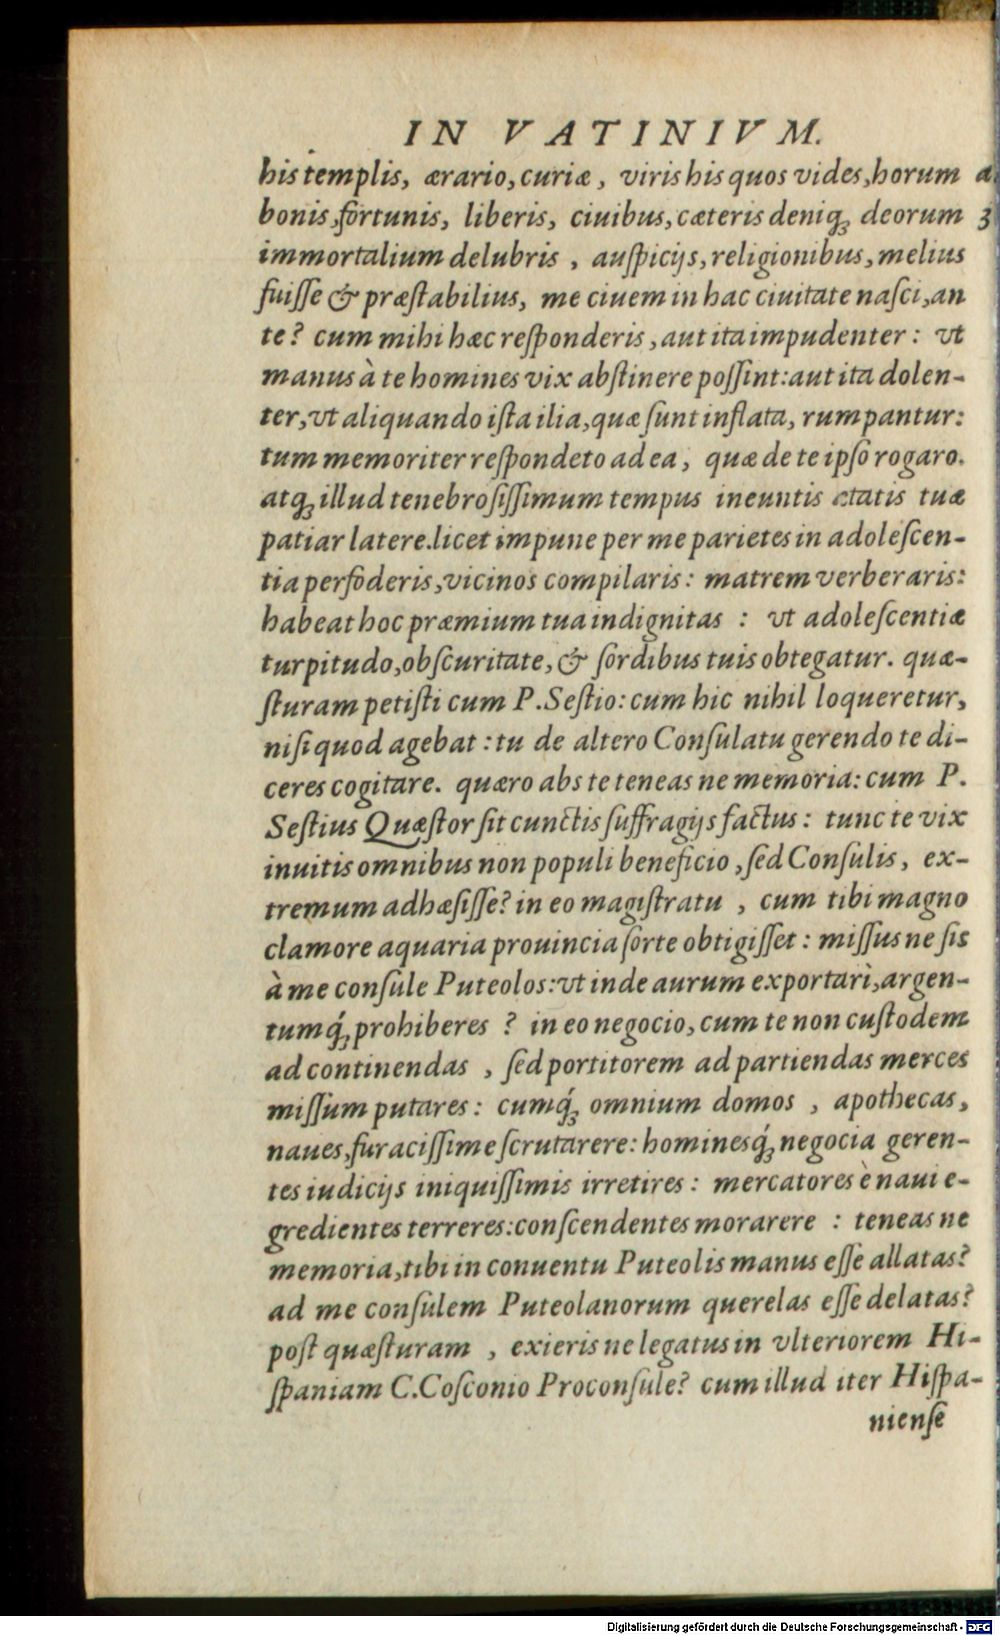 IN VATINIVM.
his templis, ærario, curiæ, viris his quos vides, horum
bonis, fortunis, liberis, ciuibus, cæteris deniqꝫ deorum
immortalium delubris, auſpicijs, religionibus, melius
fuiſſe & præſtabilius, me ciuem in hac ciuitate naſci, an
te? cum mihi hæc reſponderis, aut ita impudenter: vt
manus à te homines vix abſtinere poſſint: aut ita dolen-
ter, vt aliquando iſta ilia, quæ ſunt inflata, rumpantur:
tum memoriter reſpondeto ad ea, quæ de te ipſo rogaro.
atqꝫ illud tenebroſiſſimum tempus ineuntis ætatis tuæ
patiar latere. licet impune per me parietes in adoleſcen-
tia perfoderis, vicinos compilaris: matrem verberaris:
habeat hoc præmium tua indignitas: vt adoleſcentiæ
turpitudo, obſcuritate, & ſordibus tuis obtegatur. quæ-
ſturam petiſti cum P. Seſtio: cum hic nihil loqueretur,
niſi quod agebat: tu de altero Conſulatu gerendo te di-
ceres cogitare. quæro abs te teneas ne memoria: cum P.
Seſtius Quæſtor ſit cunctis ſuffragijs factus: tunc te vix
inuitis omnibus non populi beneficio, ſed Conſulis, ex-
tremum adhæſiſſe? in eo magiſtratu, cum tibi magno
clamore aquaria prouincia ſorte obtigiſſet: miſſus ne ſis
à me conſule Puteolos: vt inde aurum exportari, argen-
tumqꝫ́ prohiberes? in eo negocio, cum te non cuſtodem
ad continendas, ſed portitorem ad partiendas merces
miſſum putares: cumqꝫ́ omnium domos, apothecas,
naues, furaciſſime ſcrutarere: hominesqꝫ́ negocia geren-
tes iudicijs iniquiſſimis irretires: mercatores è naui e-
gredientes terreres: conſcendentes morarere: teneas ne
memoria, tibi in conuentu Puteolis manus eſſe allatas?
ad me conſulem Puteolanorum querelas eſſe delatas?
poſt quæſturam, exieris ne legatus in vlteriorem Hi-
ſpaniam C. Coſconio Proconſule? cum illud iter Hiſpa-
nienſe
Digitalisierung gefördert durch die Deutsche Forschungsgemeinschaft - DFG